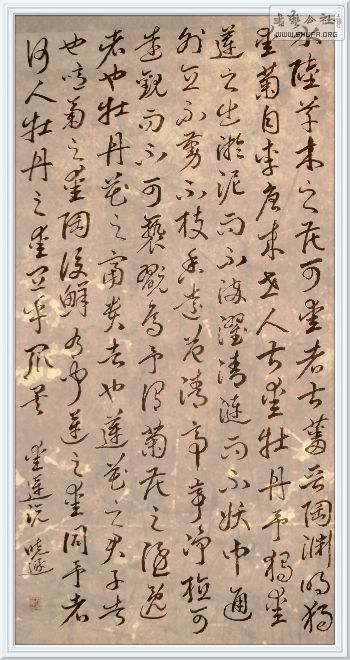 水陸草木之花可愛者甚蕃晉陶淵明獨
愛菊自李唐來世人甚愛牡丹予獨愛
蓮之出淤泥而不染濯清漣而不妖中通
外直不蔓不枝香遠益清亭亭淨植可
遠觀而不可褻翫焉予謂菊花之隱逸
者也牡丹花之富貴者也蓮花之君子者
也噫菊之愛陶後鮮有聞蓮之愛同予者
何人牡丹之愛宜乎眾矣
愛蓮說 曉
书艺公社
WWW.SHUFA.ORG